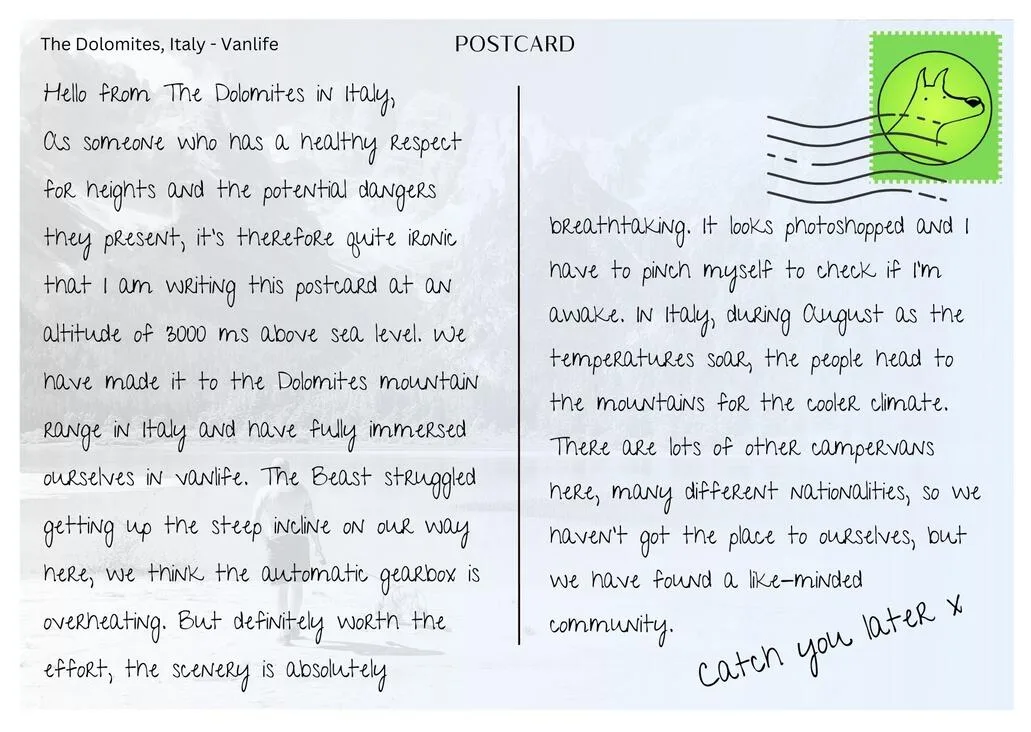 The Dolomites, Italy - Vanlife
POSTCARD
Hello from The Dolomites in Italy,
As someone who has a healthy respect
for heights and the potential dangers
they present, it's therefore quite ironic
that I am writing this postcard at an
altitude of 3000 ms above sea level. We
have made it to the Dolomites mountain
range in Italy and have fully immersed
ourselves in vanlife. The Beast struggled
getting up the steep incline on our way
here, we think the automatic gearbox is
overheating. But definitely worth the
effort, the scenery is absolutely
breathtaking. It looks photoshopped and I
have to pinch myself to check if I'm
awake. In Italy, during August as the
temperatures soar, the people head to
the mountains for the cooler climate.
There are lots of other campervans
here, many different nationalities, so we
haven't got the place to ourselves, but
we have found a like-minded
community.
Catch you later x